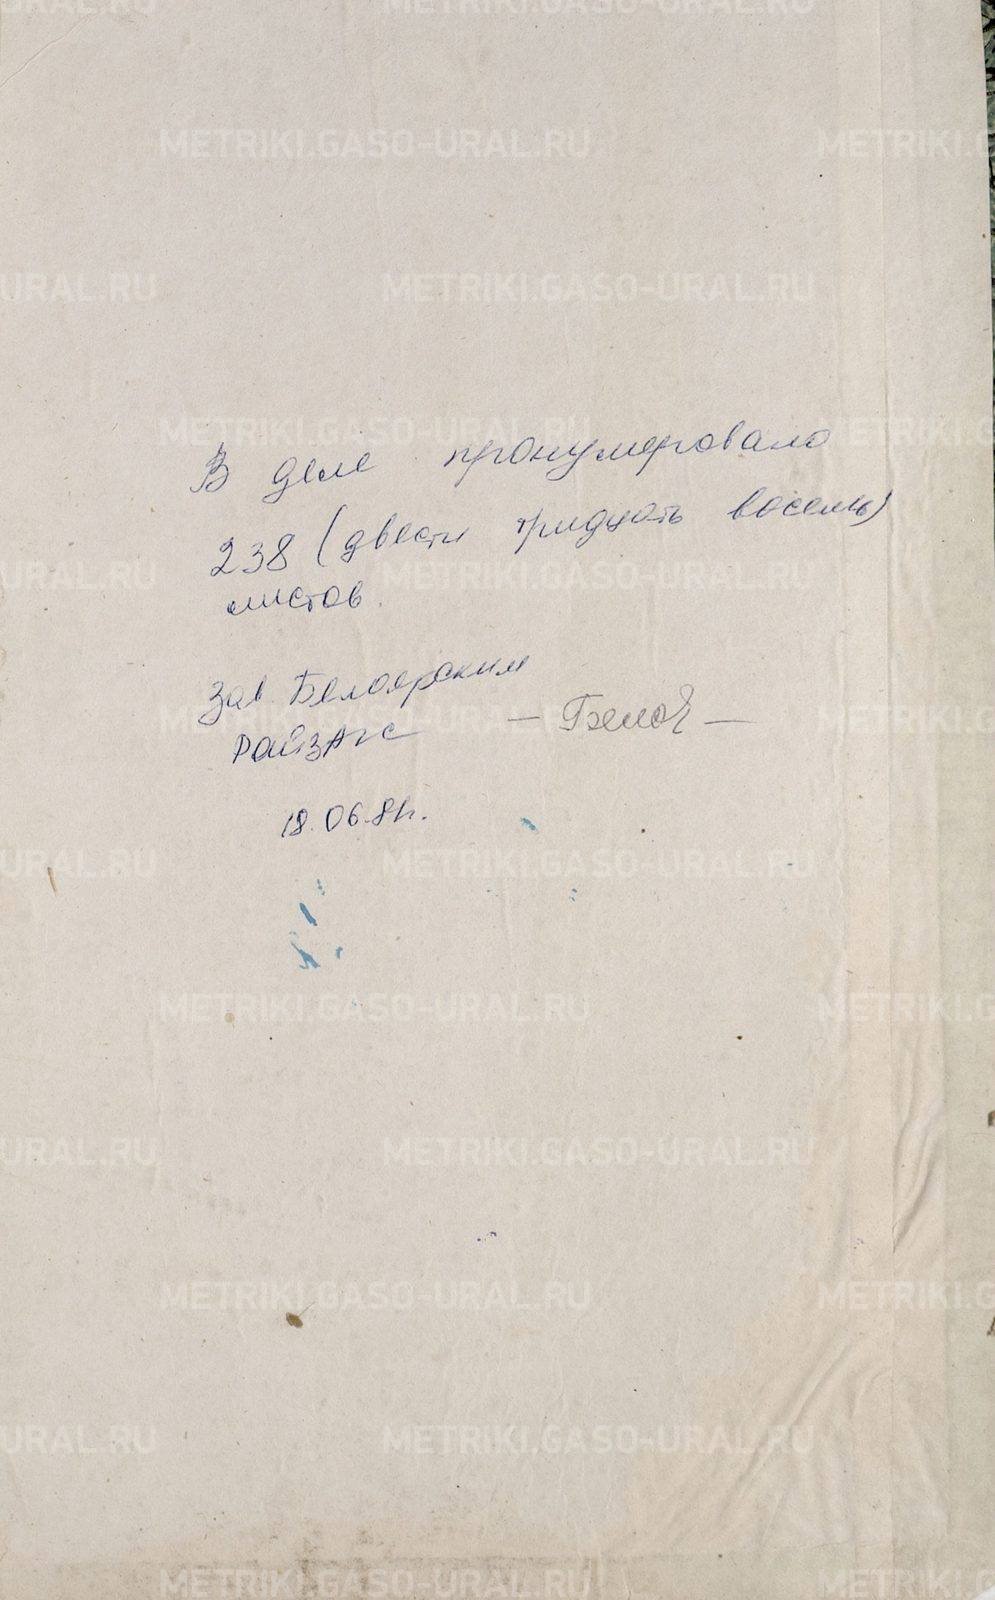 В деле пронумеровало
238 (двести тридцать восемь)
листов.
Зав. Белоярским
РайЗАГС
18.06.81г.
METRIKI.GASO-URAL.RU